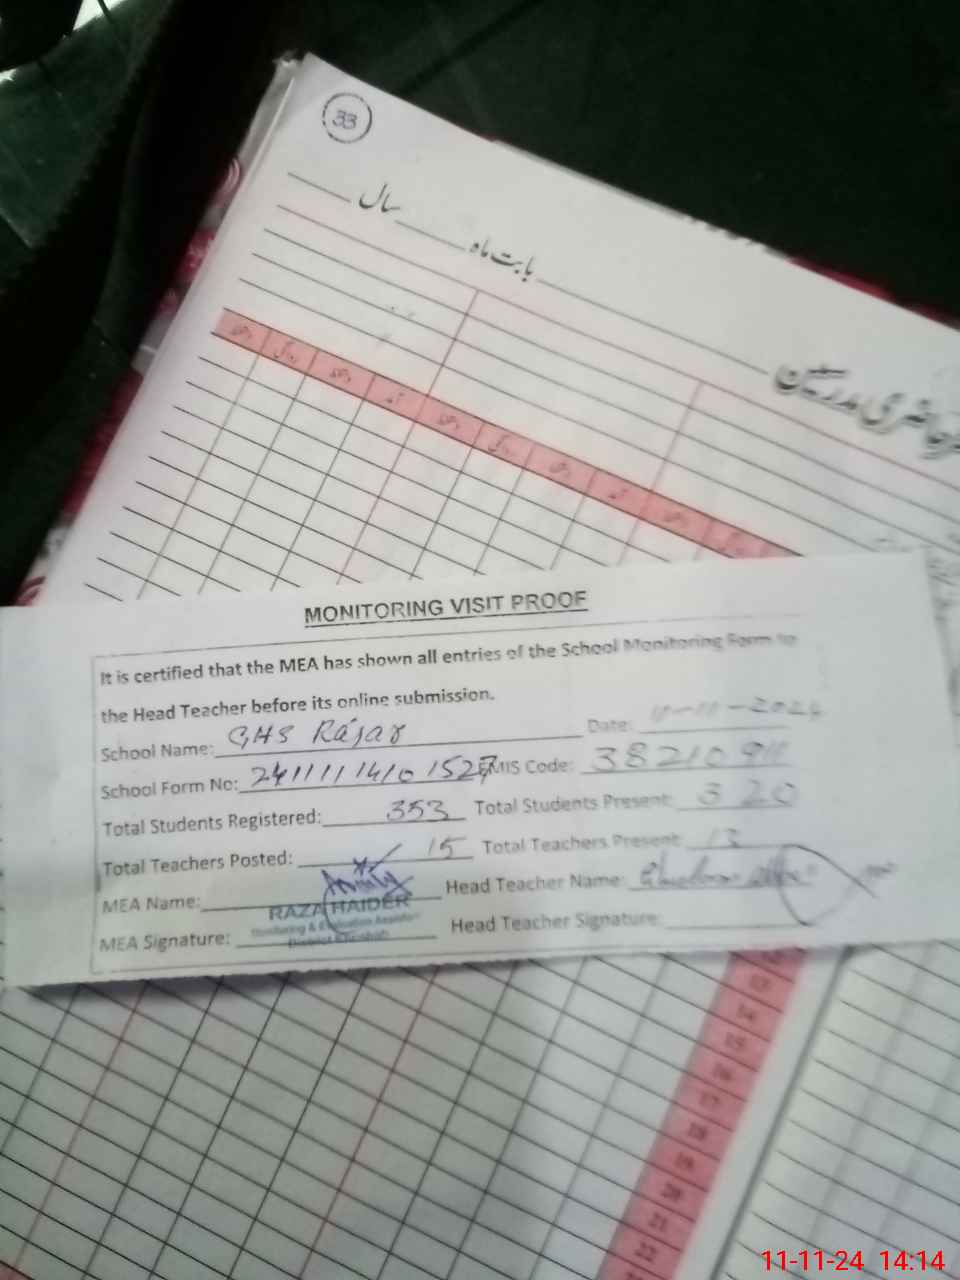 33
بابت ماہ ____ سال ____
حاضری مدرسین
MONITORING VISIT PROOF
It is certified that the MEA has shown all entries of the School Monitoring Form to
the Head Teacher before its online submission.
School Name: GHS Rájar Date: 11-11-2024
School Form No: EMIS Code: 38210911
Total Students Registered: 353 Total Students Present: 320
Total Teachers Posted: 15 Total Teachers Present: 13
MEA Name: Head Teacher Name:
RAZA HAIDER
Monitoring & Evaluation Assistant
MEA Signature: Head Teacher Signature:
District Khushab
12
13
14
15
16
17
18
19
20
21
22
11-11-24 14:14